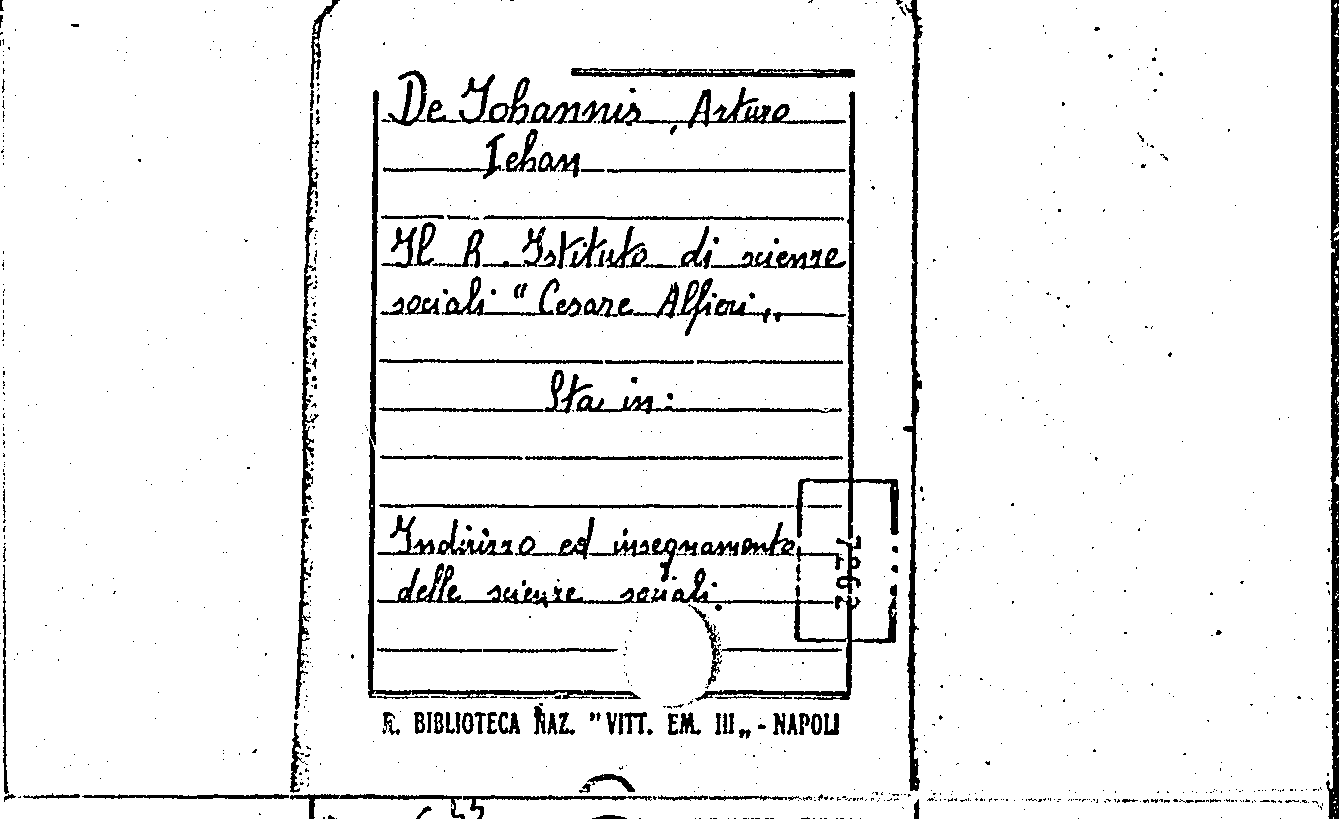 De Johannis, Arturo
Iehan
Il R. Istituto di scienze
sociali "Cesare Alfieri„
Sta in:
Indirizzo ed insegnamento
delle scienze sociali.
R. BIBLIOTECA NAZ. "VITT. EM. III„ - NAPOLI